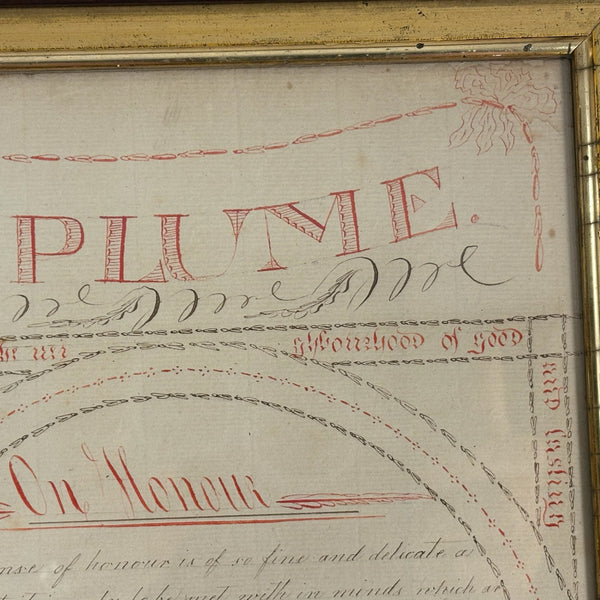 PLUME.
ghbourhood of good
and lasting
On Honour
nse of honour is of so fine and delicate a
met with in minds which ar